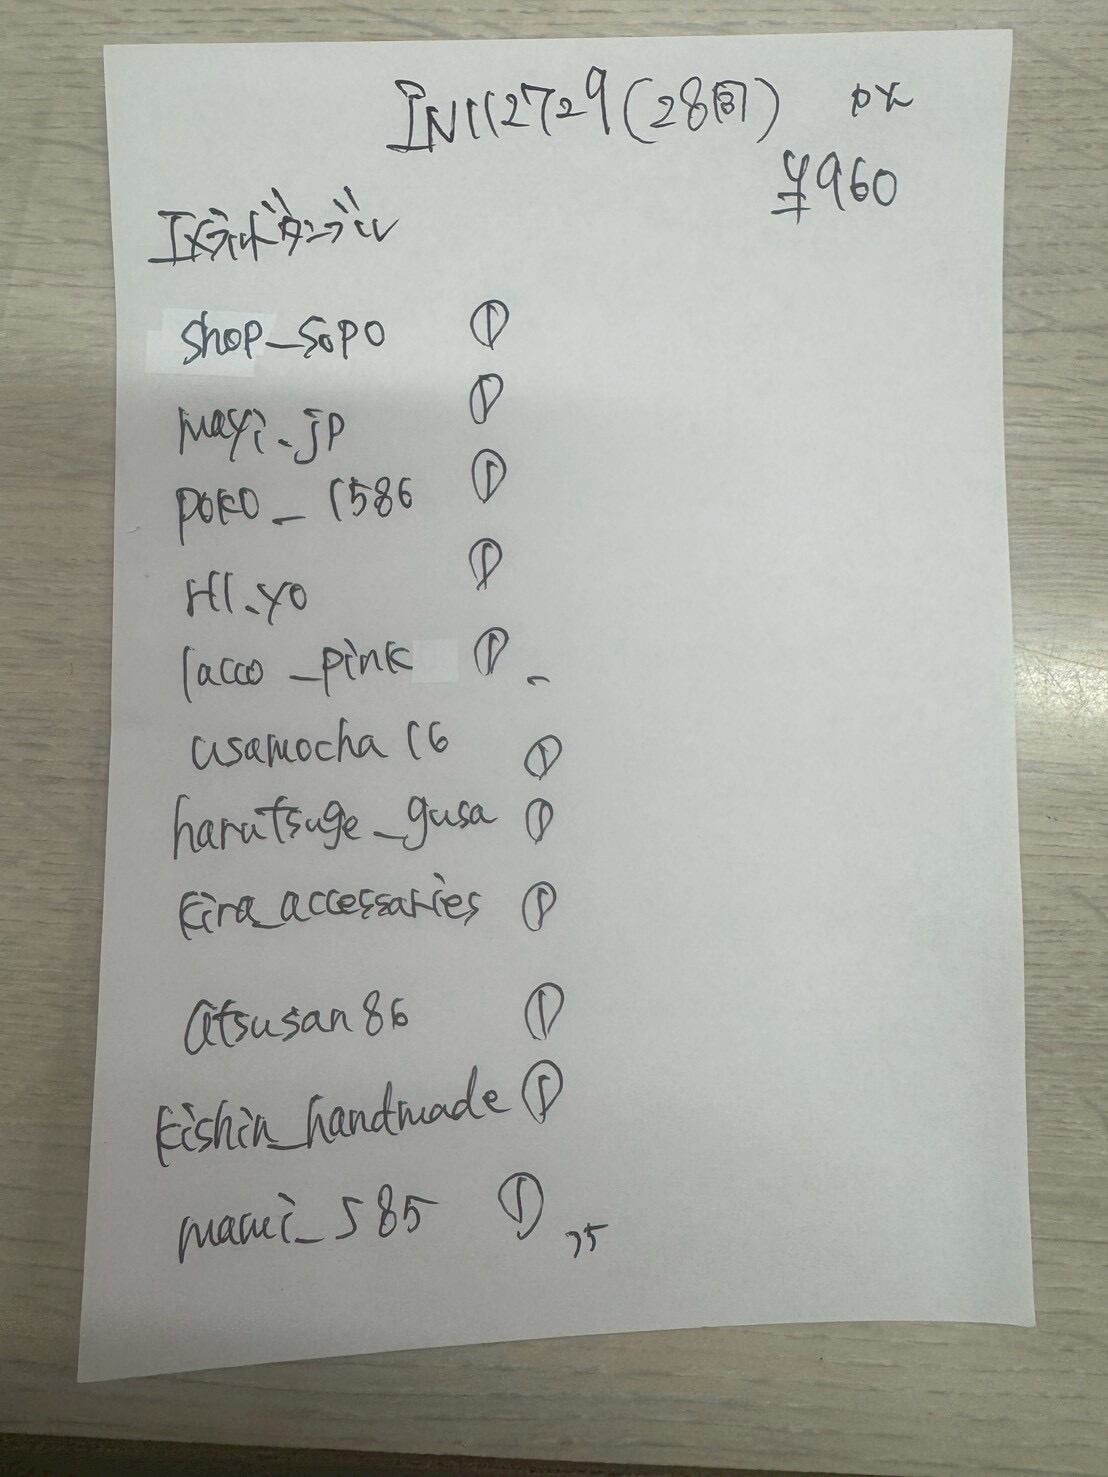 IN112729(28日)
¥960
shop_sopo ①
mayi_jp ①
poko_1586 ①
HI.yo ①
lacco_pink ①
usamocha16 ①
harutsuge_gusa ①
kira_accessaries ①
atsusan86 ①
kishin_handmade ①
mami_585 ①